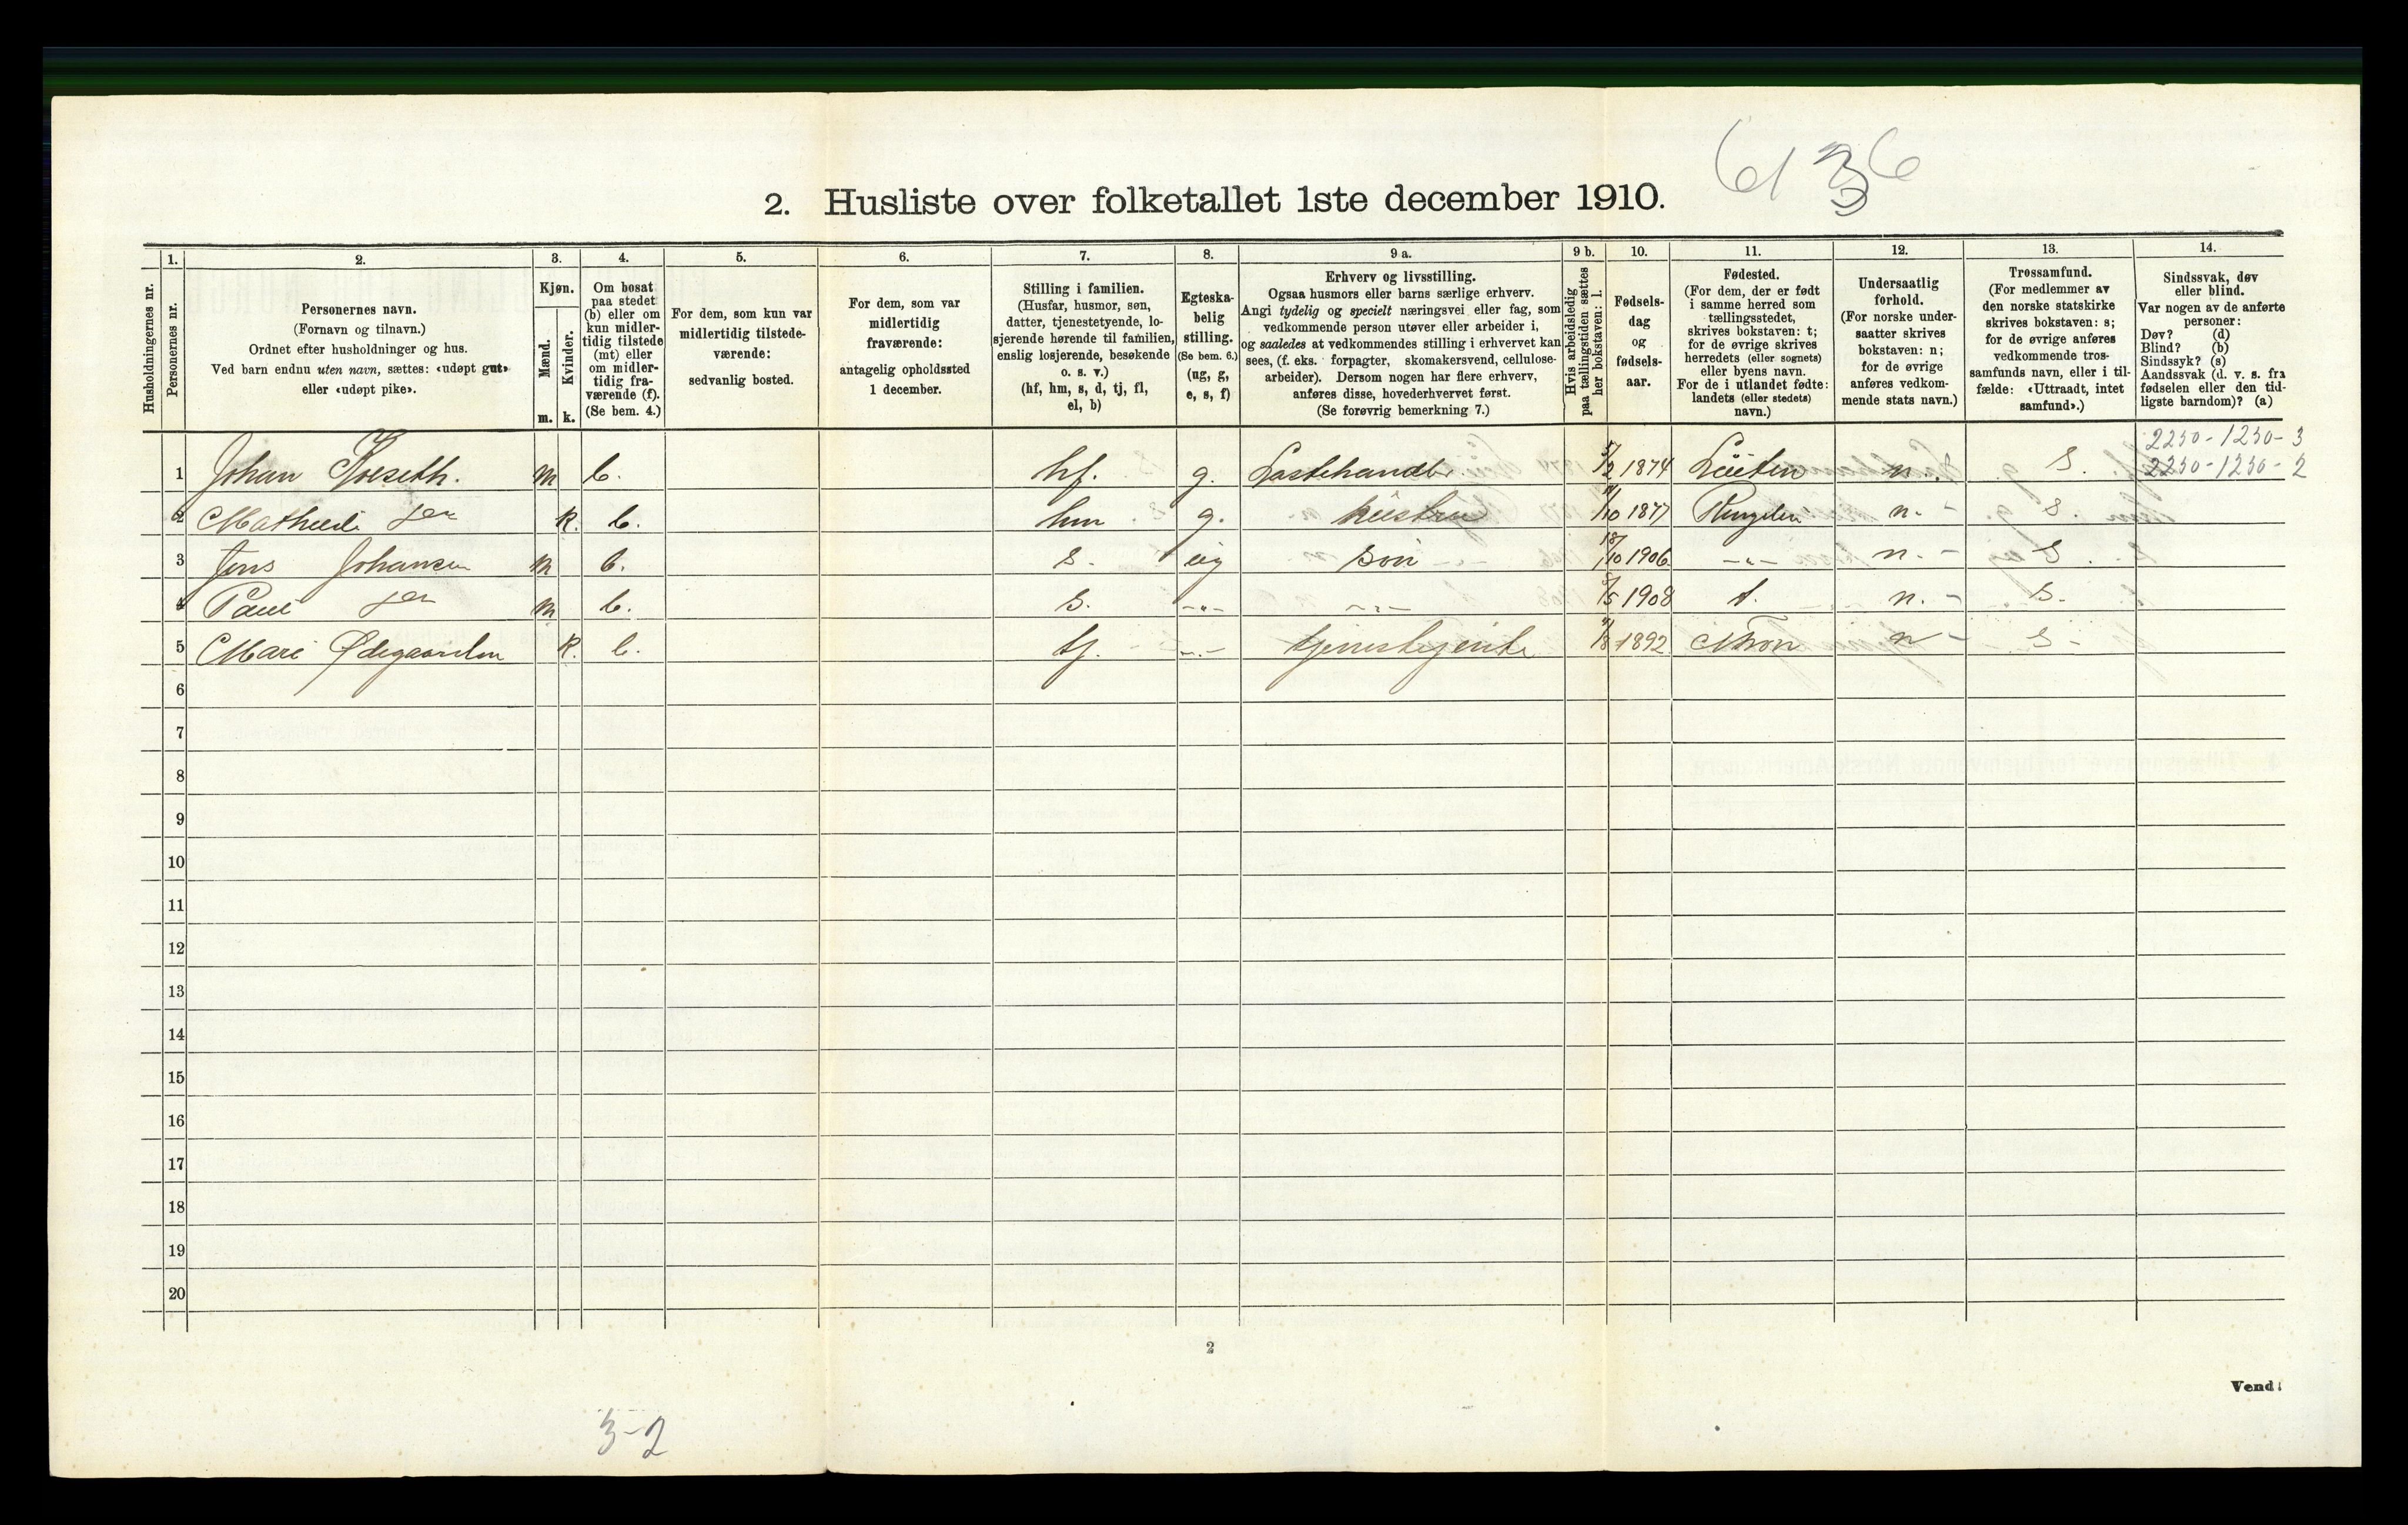 6136
2. Husliste over folketallet 1ste december 1910.
Husholdningernes nr.
1. Personernes nr.
2. Personernes navn. (Fornavn og tilnavn.) Ordnet efter husholdninger og hus. Ved barn endnu uten navn, sættes: «udøpt gut» eller «udøpt pike».
3. Kjøn. Mænd. m. Kvinder. k.
4. Om bosat paa stedet (b) eller om kun midlertidig tilstede (mt) eller om midlertidig fraværende (f). (Se bem. 4.)
5. For dem, som kun var midlertidig tilstedeværende: sedvanlig bosted.
6. For dem, som var midlertidig fraværende: antagelig opholdssted 1 december.
7. Stilling i familien. (Husfar, husmor, søn, datter, tjenestetyende, losjerende hørende til familien, enslig losjerende, besøkende o. s. v.) (hf, hm, s, d, tj, fl, el, b)
8. Egteskabelig stilling. (Se bem. 6.) (ug, g, e, s, f)
9 a. Erhverv og livsstilling. Ogsaa husmors eller barns særlige erhverv. Angi tydelig og specielt næringsvei eller fag, som vedkommende person utøver eller arbeider i, og saaledes at vedkommendes stilling i erhvervet kan sees, (f. eks. forpagter, skomakersvend, cellulosearbeider). Dersom nogen har flere erhverv, anføres disse, hovederhvervet først. (Se forøvrig bemerkning 7.)
9 b. Hvis arbeidsledig paa tællingstiden sættes her bokstaven: l.
10. Fødselsdag og fødselsaar.
11. Fødested. (For dem, der er født i samme herred som tællingsstedet, skrives bokstaven: t; for de øvrige skrives herredets (eller sognets) eller byens navn. For de i utlandet fødte: landets (eller stedets) navn.)
12. Undersaatlig forhold. (For norske undersaatter skrives bokstaven: n; for de øvrige anføres vedkommende stats navn.)
13. Trossamfund. (For medlemmer av den norske statskirke skrives bokstaven: s; for de øvrige anføres vedkommende trossamfunds navn, eller i tilfælde: «Uttraadt, intet samfund».)
14. Sindssvak, døv eller blind. Var nogen av de anførte personer: Døv? (d) Blind? (b) Sindssyk? (s) Aandssvak (d. v. s. fra fødselen eller den tidligste barndom)? (a)
2250-1230-3
1 Johan m b. hf. g. 5/2 1874 Löiten n. S. 2250-1230-2
2 k. b. hm g. hüstru 1877 n. - S.
3 Jens Johansen m b. s. ug søn 18/10 1906 -"- n. - S
4 Paul m b. s. -"- -"- 1908 t. n. - S.
5 Mari Ødegaarden k. b. tj. -"- tjenestejente 1892 n - S -
6
7
8
9
10
11
12
13
14
15
16
17
18
19
20
2
Vend!
3-2